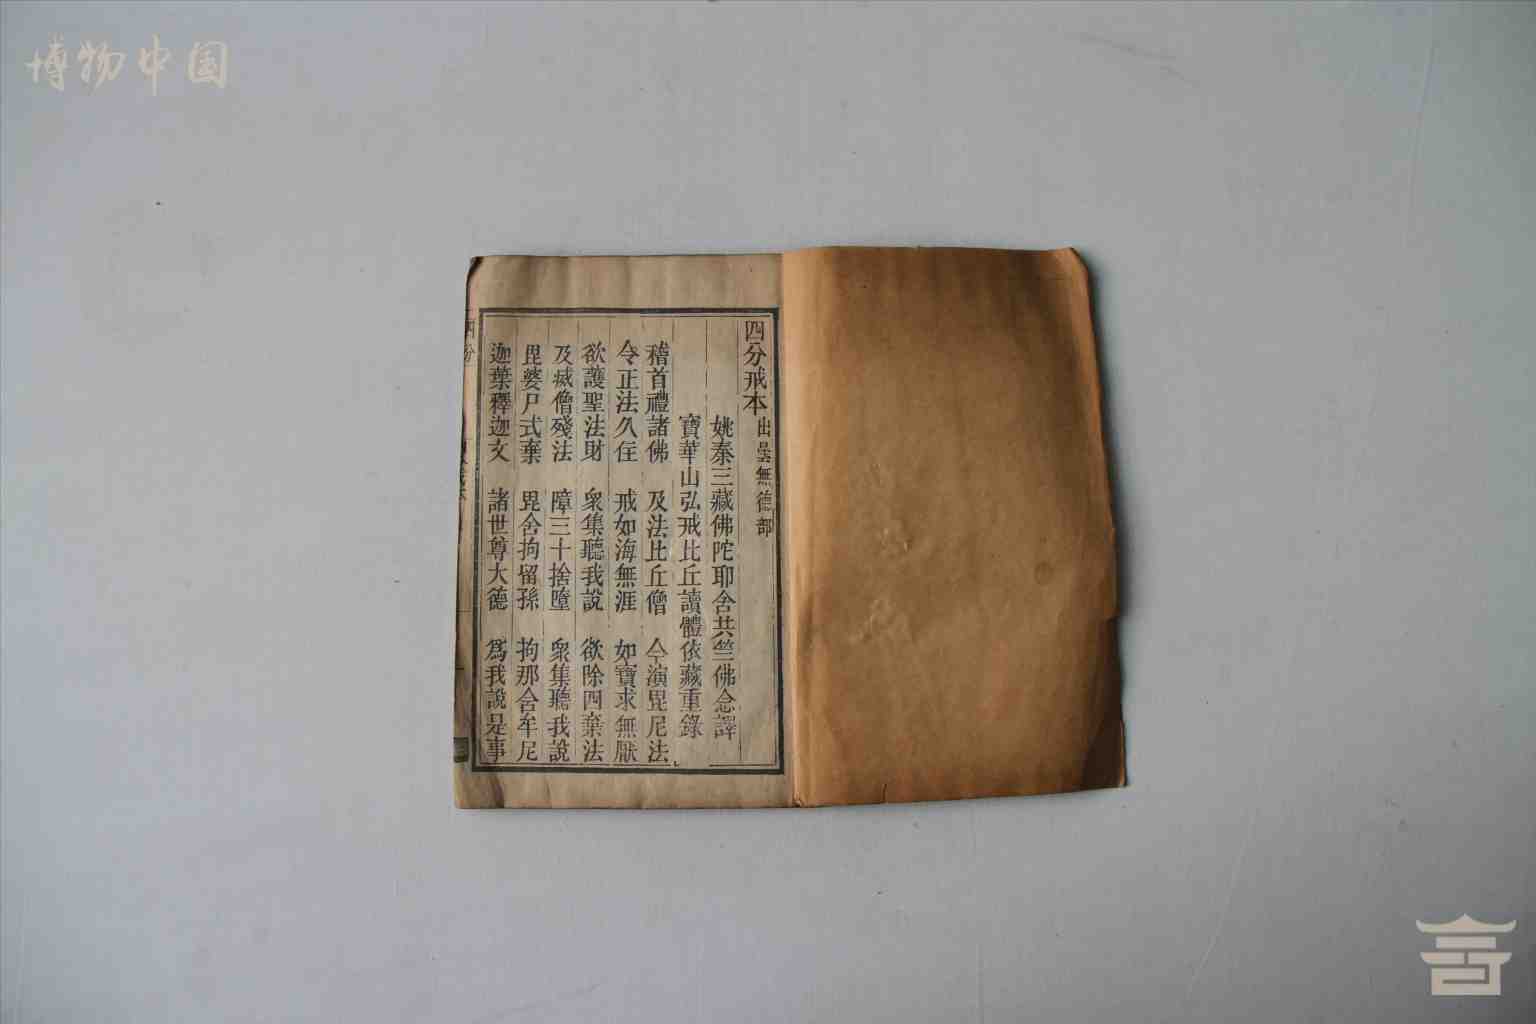 博物中国
四分戒本 出曇無德部
姚秦三藏佛陀耶舍共竺佛念譯
寶華山弘戒比丘讀體依藏重錄
稽首禮諸佛 及法比丘僧 今演毘尼法
令正法久住 戒如海無涯 如寶求無厭
欲護聖法財 衆集聽我說 欲除四棄法
及滅僧殘法 障三十捨墮 衆集聽我說
毘婆尸式棄 毘舍拘留孫 拘那含牟尼
迦葉釋迦文 諸世尊大德 爲我說是事
四分